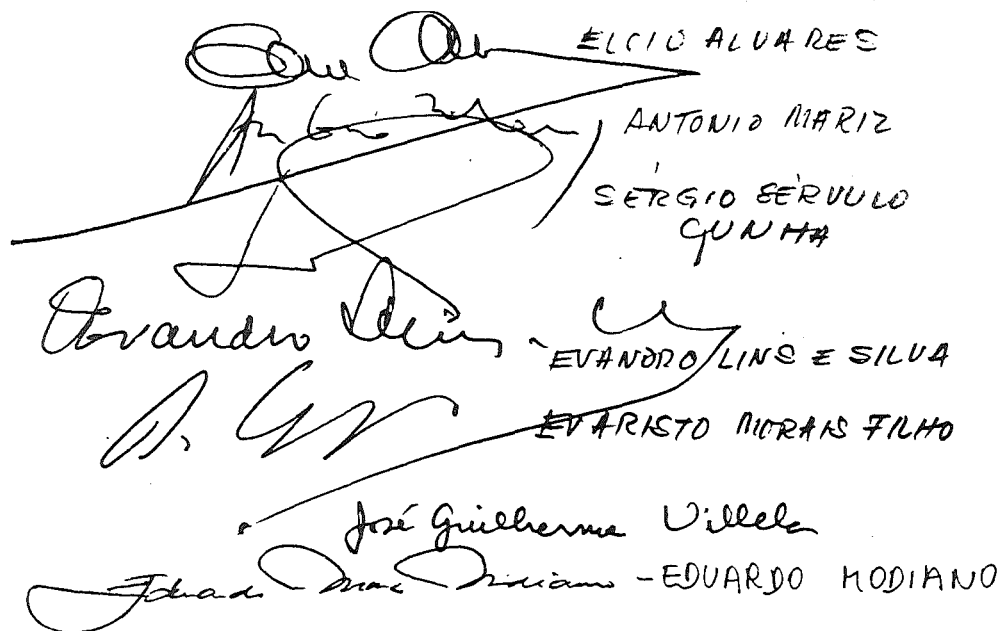 ELCIO ALVARES
ANTONIO MARIZ
SÉRGIO SÉRVULO
CUNHA
Evandro Lins
EVANDRO LINS E SILVA
EVARISTO MORAIS FILHO
José Guilherme Villela
Eduardo Modiano - EDUARDO MODIANO